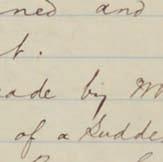 ned and
t.
ade by W
of a Sudde